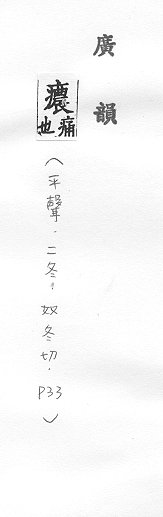 廣韻
癑痛也
（平聲．二冬。奴冬切．P33）